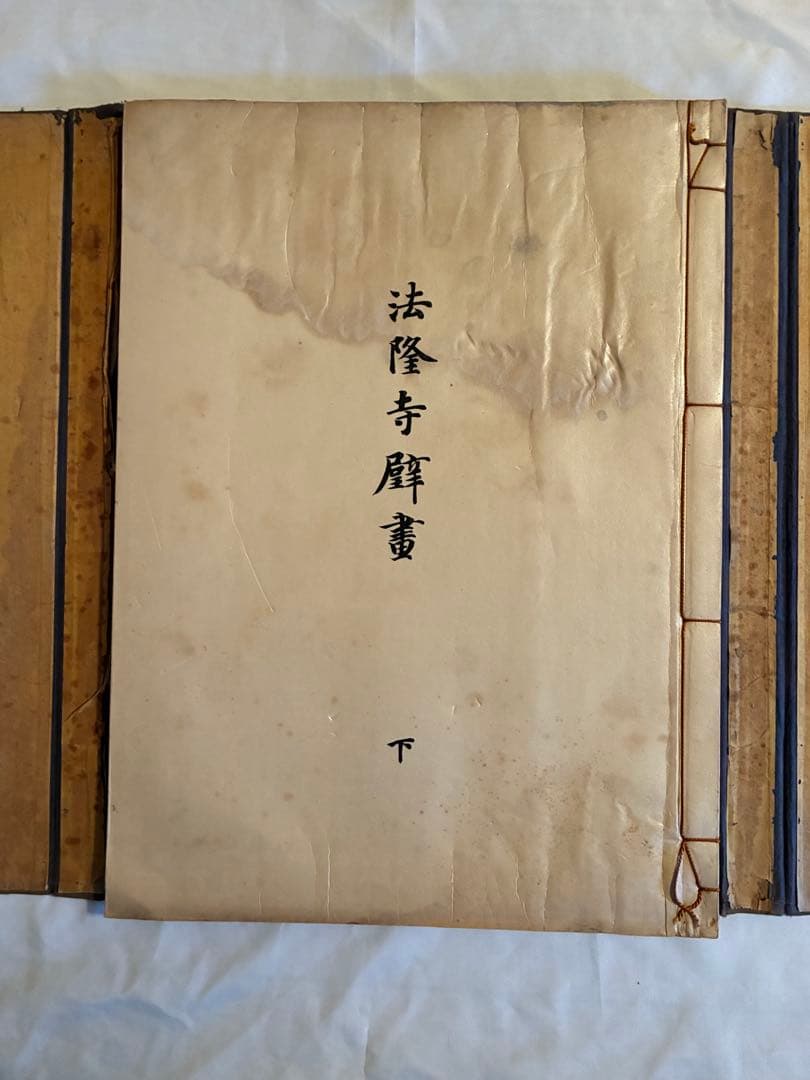 法隆寺壁畫
下